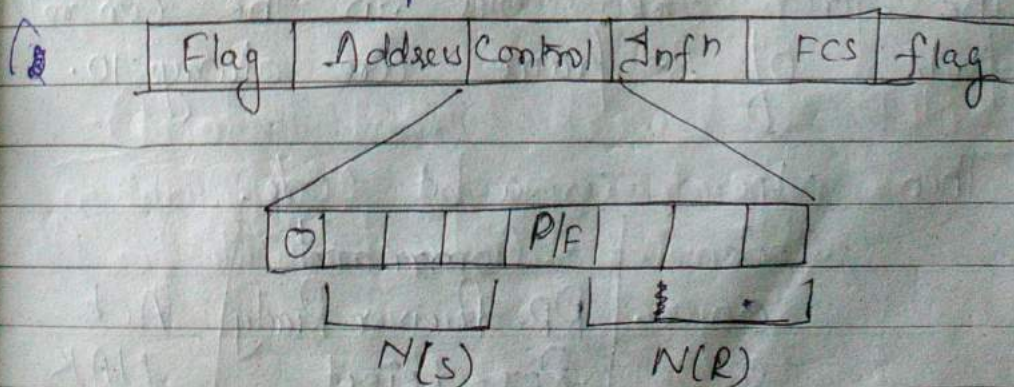 Flag Address Control Infn FCS flag
0 P/F
N(S) N(R)